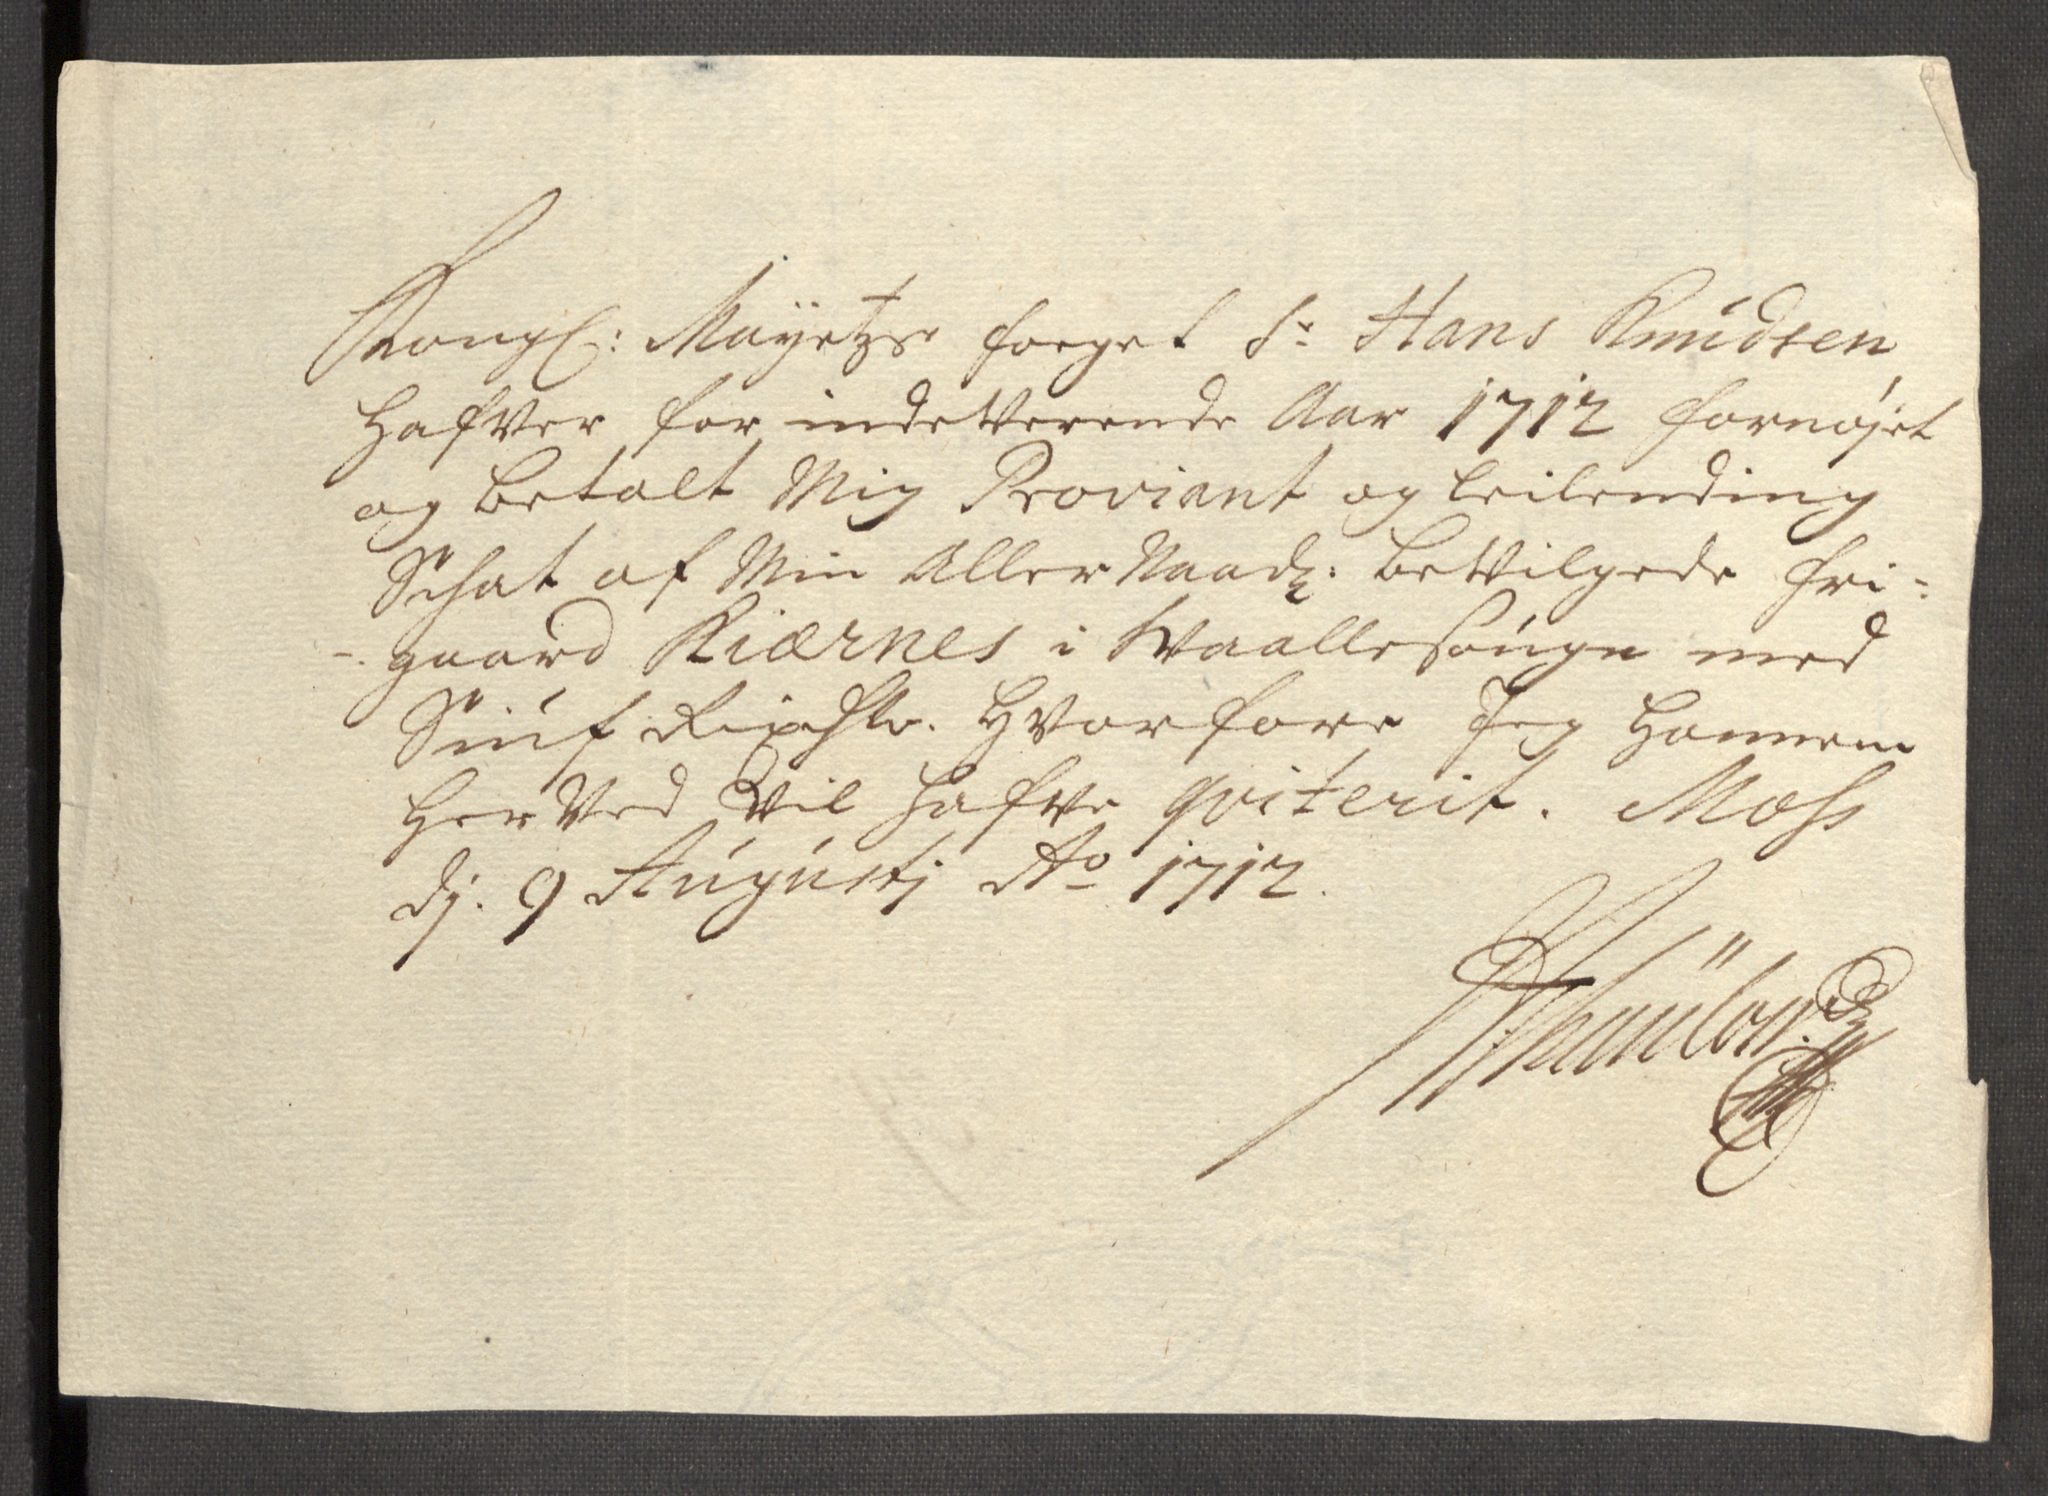 Kongl: Mayetzs foeget Sr Hans Knudsen
Hafver for indeVerende Aar 1712 fornøjet
og betalt Mig Proviant og Leilending
Schat af Min Aller Naadg: beVilgede fri-
-gaard Kiærnes i Waalle Sougn med
Siuf Rixdlr. HVorfore Jeg Hannem
HerVed Vil hafve qviterit. Moss
dj. 9 Augustj Ao 1712.